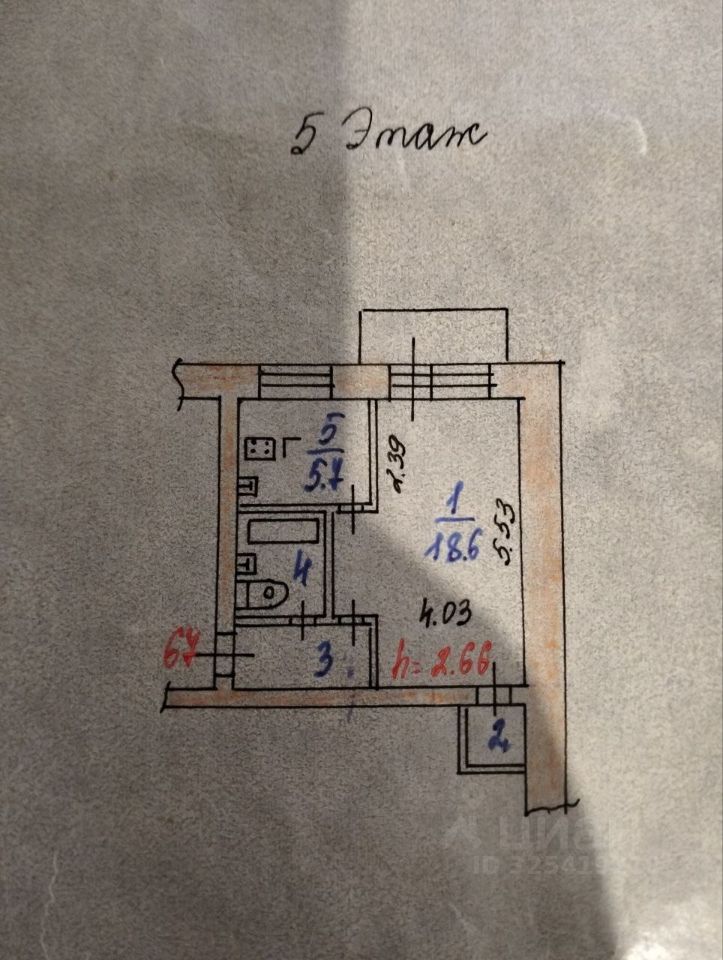 5 Этаж
5
5.7
2.39
1
18.6
5.53
4
4.03
67
3
h=2.66
2
циан